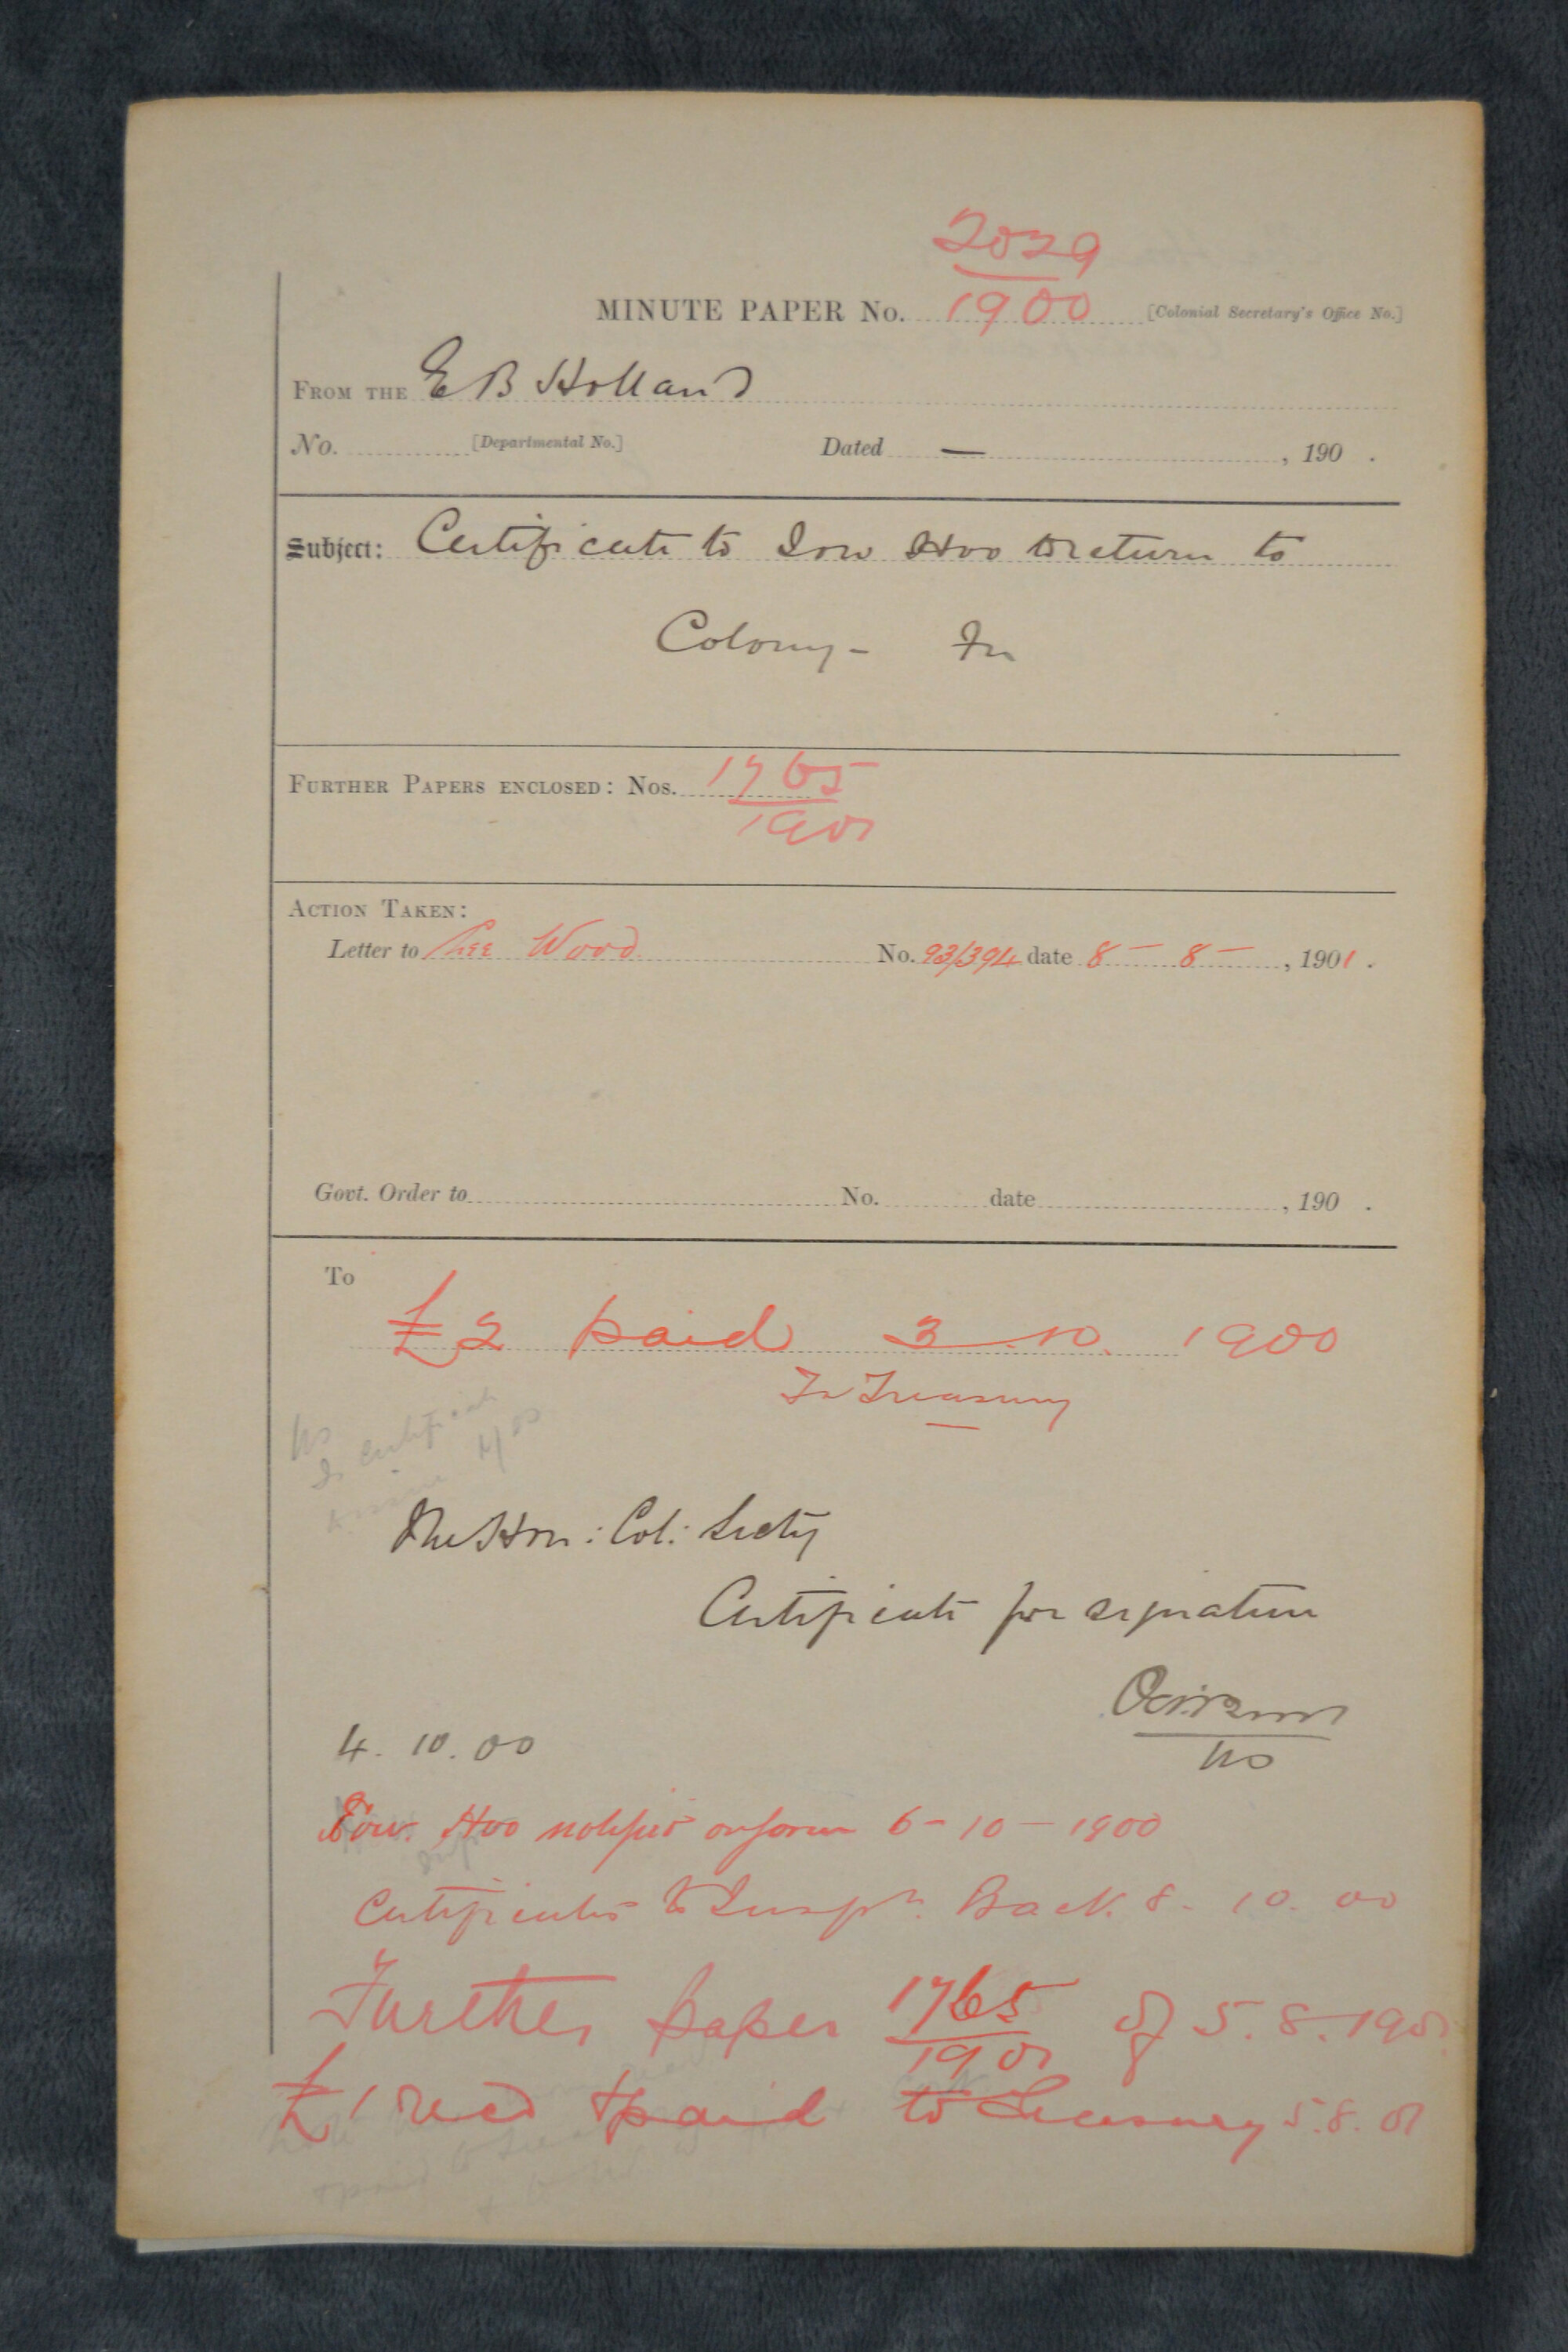 2029
MINUTE PAPER No. 1900 [Colonial Secretary's Office No.]
FROM THE E B Holland
No. [Departmental No.] Dated — , 190 .
Subject: Certificate to Hoo to return to
Colony -
FURTHER PAPERS ENCLOSED: Nos. 1765
1901
ACTION TAKEN:
Letter to Wood No. 93/394 date 8 - 8 - , 1901 .
Govt. Order to No. date , 190 .
To
£2 paid 3 . 10. 1900
To Treasury
Certificate
Hoo
The Hon: Col: Secty
Certificate for signature
4. 10. 00
Hoo notified on form 6 - 10 - 1900
Certificates to Inspr. Back 8. 10. 00
Further paper 1765 of 5. 8. 1901
1901
£1 recd & paid to Treasury 5. 8. 01